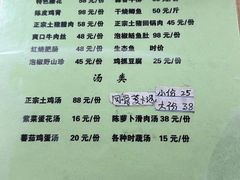 特色腰花 58 元/份 干烧鲫鱼
陈皮鸡膏 98 元/份 正宗土猪回锅肉
正宗土猪腊肉 48 元/份 泡椒鲢鱼肚 98 元/份
爽口牛肉丝 48 元/份 生态鱼 时价
红烧肥肠 50 元/份 鸡抓豆腐 25 元/份
泡椒野山珍 45 元/份
汤 类
正宗土鸡汤 88 元/份 小份 25
大份 38
紫菜蛋花汤 16 元/份 陈萝卜滑肉汤 38 元/份
番茄鸡蛋汤 20 元/份 各种时蔬汤 15 元/份